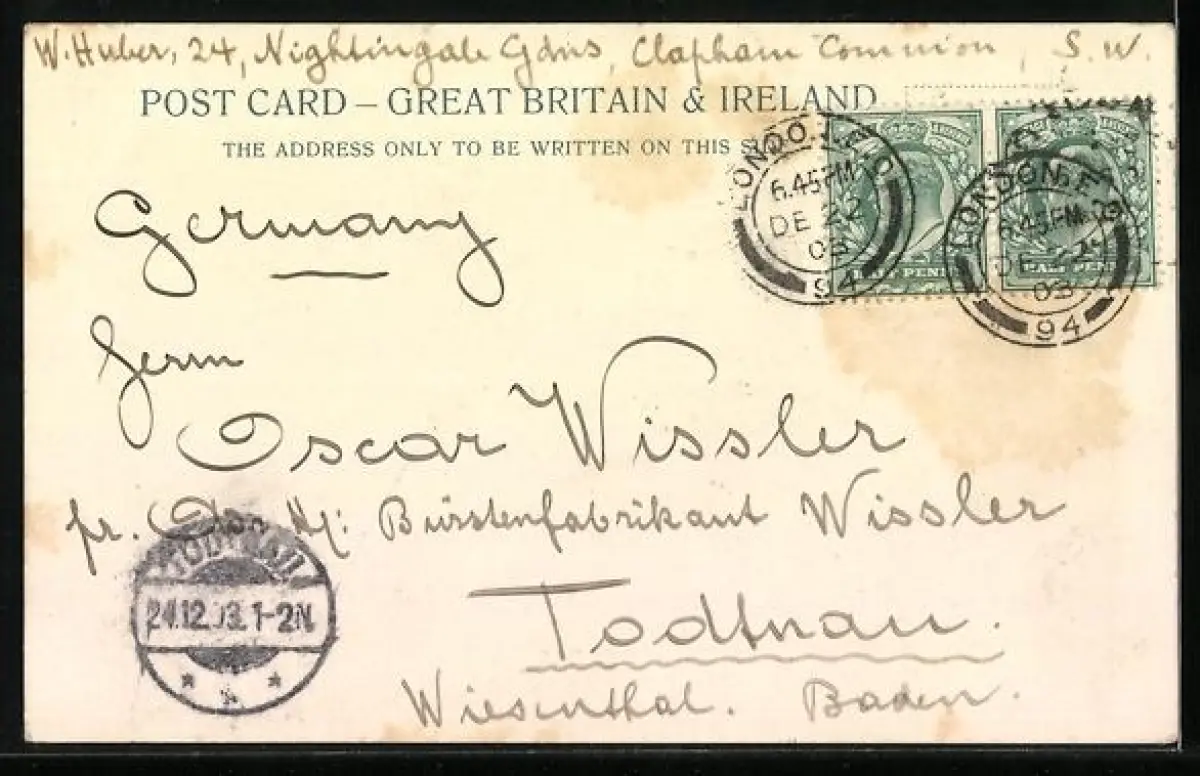 W. Huber, 24, Nightingale Gdns, Clapham Common, S. W.
POST CARD – GREAT BRITAIN & IRELAND
THE ADDRESS ONLY TO BE WRITTEN ON THIS
LONDON
6.45PM
DE 22
03
94
HALF PENNY
LONDON. E
6.45PM
DE 22
03
94
HALF PENNY
Germany
Herrn
Oscar Wissler
pr. Bürstenfabrikant Wissler
TODTNAU
24.12.03.1-2N
Todtnau.
Wiesenthal. Baden.